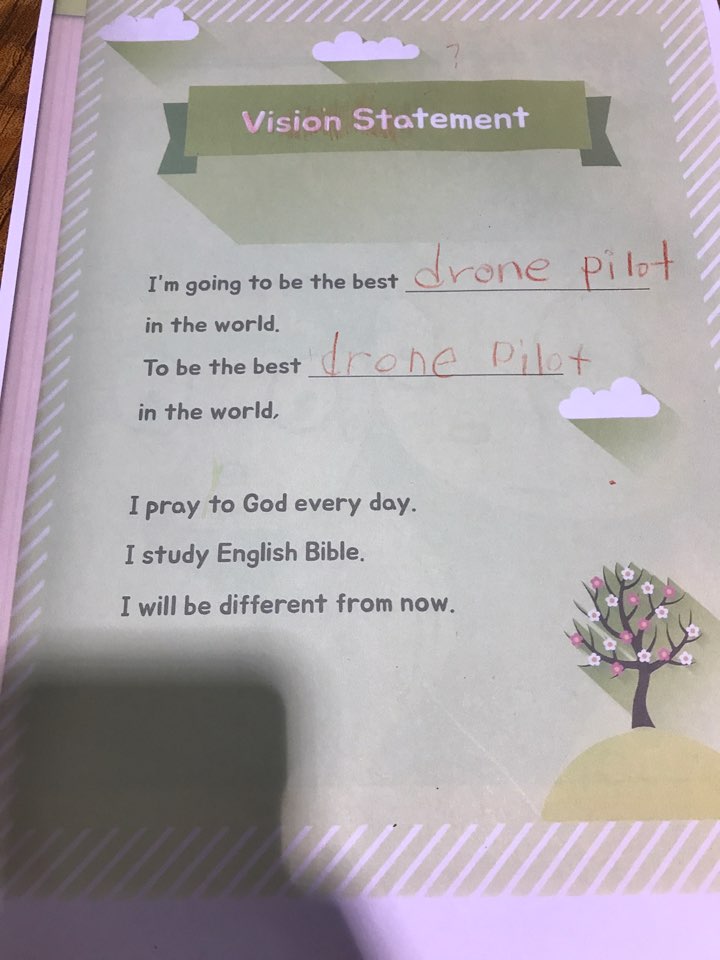 ?
Vision Statement
I'm going to be the best drone pilot
in the world.
To be the best drone pilot
in the world,
I pray to God every day.
I study English Bible.
I will be different from now.